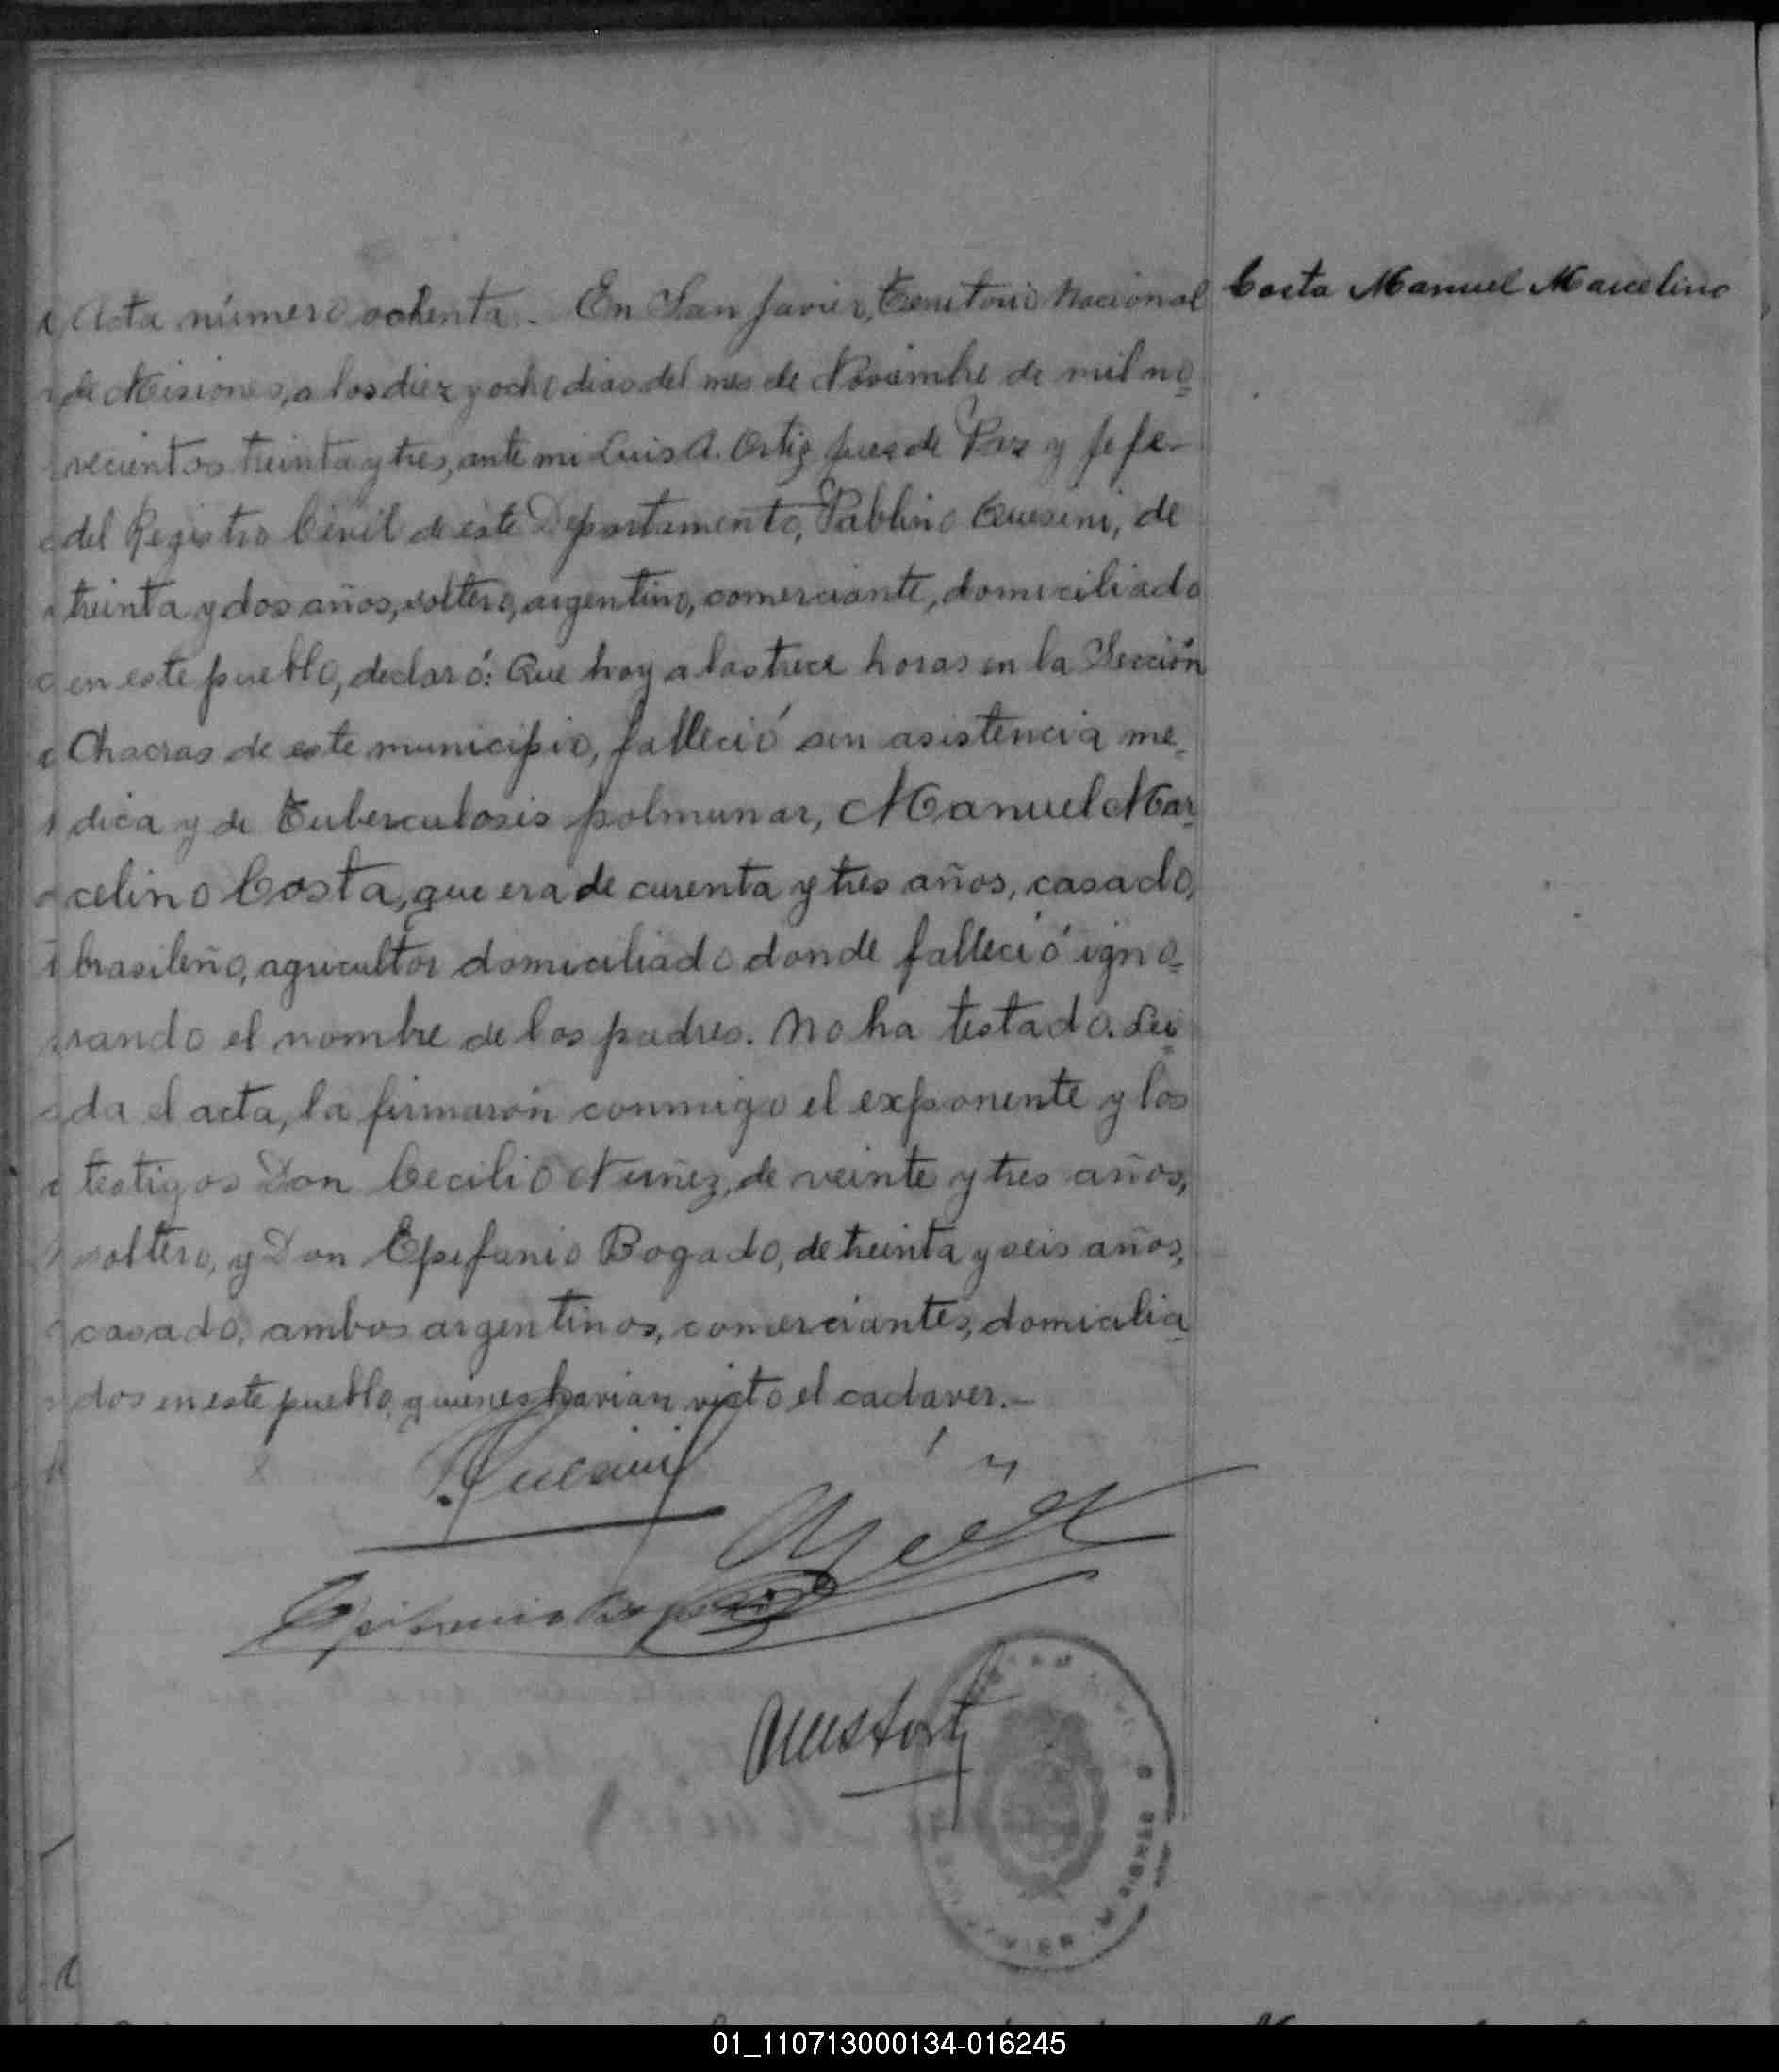 Costa Manuel Marcelino
Acta número ochenta.- En San Javier, Territorio Nacional
de Misiones, a los diez y ocho dias del mes de Noviembre de mil no-
vecientos treinta y tres, ante mi Luis A. Ortiz Juez de Paz y Jefe-
del Registro Civil de este Departamento, Pablino Cuesini, de
treinta y dos años, soltero, argentino, comerciante, domiciliado
en este pueblo, declaró: Que hoy a las trece horas en la Sección
Chacras de este municipio, falleció sin asistencia me-
dica y de Tuberculosis polmunar, Manuel Mar-
celino Costa, que era de curenta y tres años, casado,
brasileño, agricultor domiciliado donde falleció igno-
rando el nombre de los padres. No ha testado. Lei-
da el acta, la firmarón conmigo el exponente y los
testigos Don Cecilio Nuñez, de veinte y tres años,
soltero, y Don Epifanio Bogado, de treinta y seis años,
casado, ambos argentinos, comerciantes, domicilia-
dos en este pueblo, quienes havian visto el cadaver.-
01_110713000134-016245